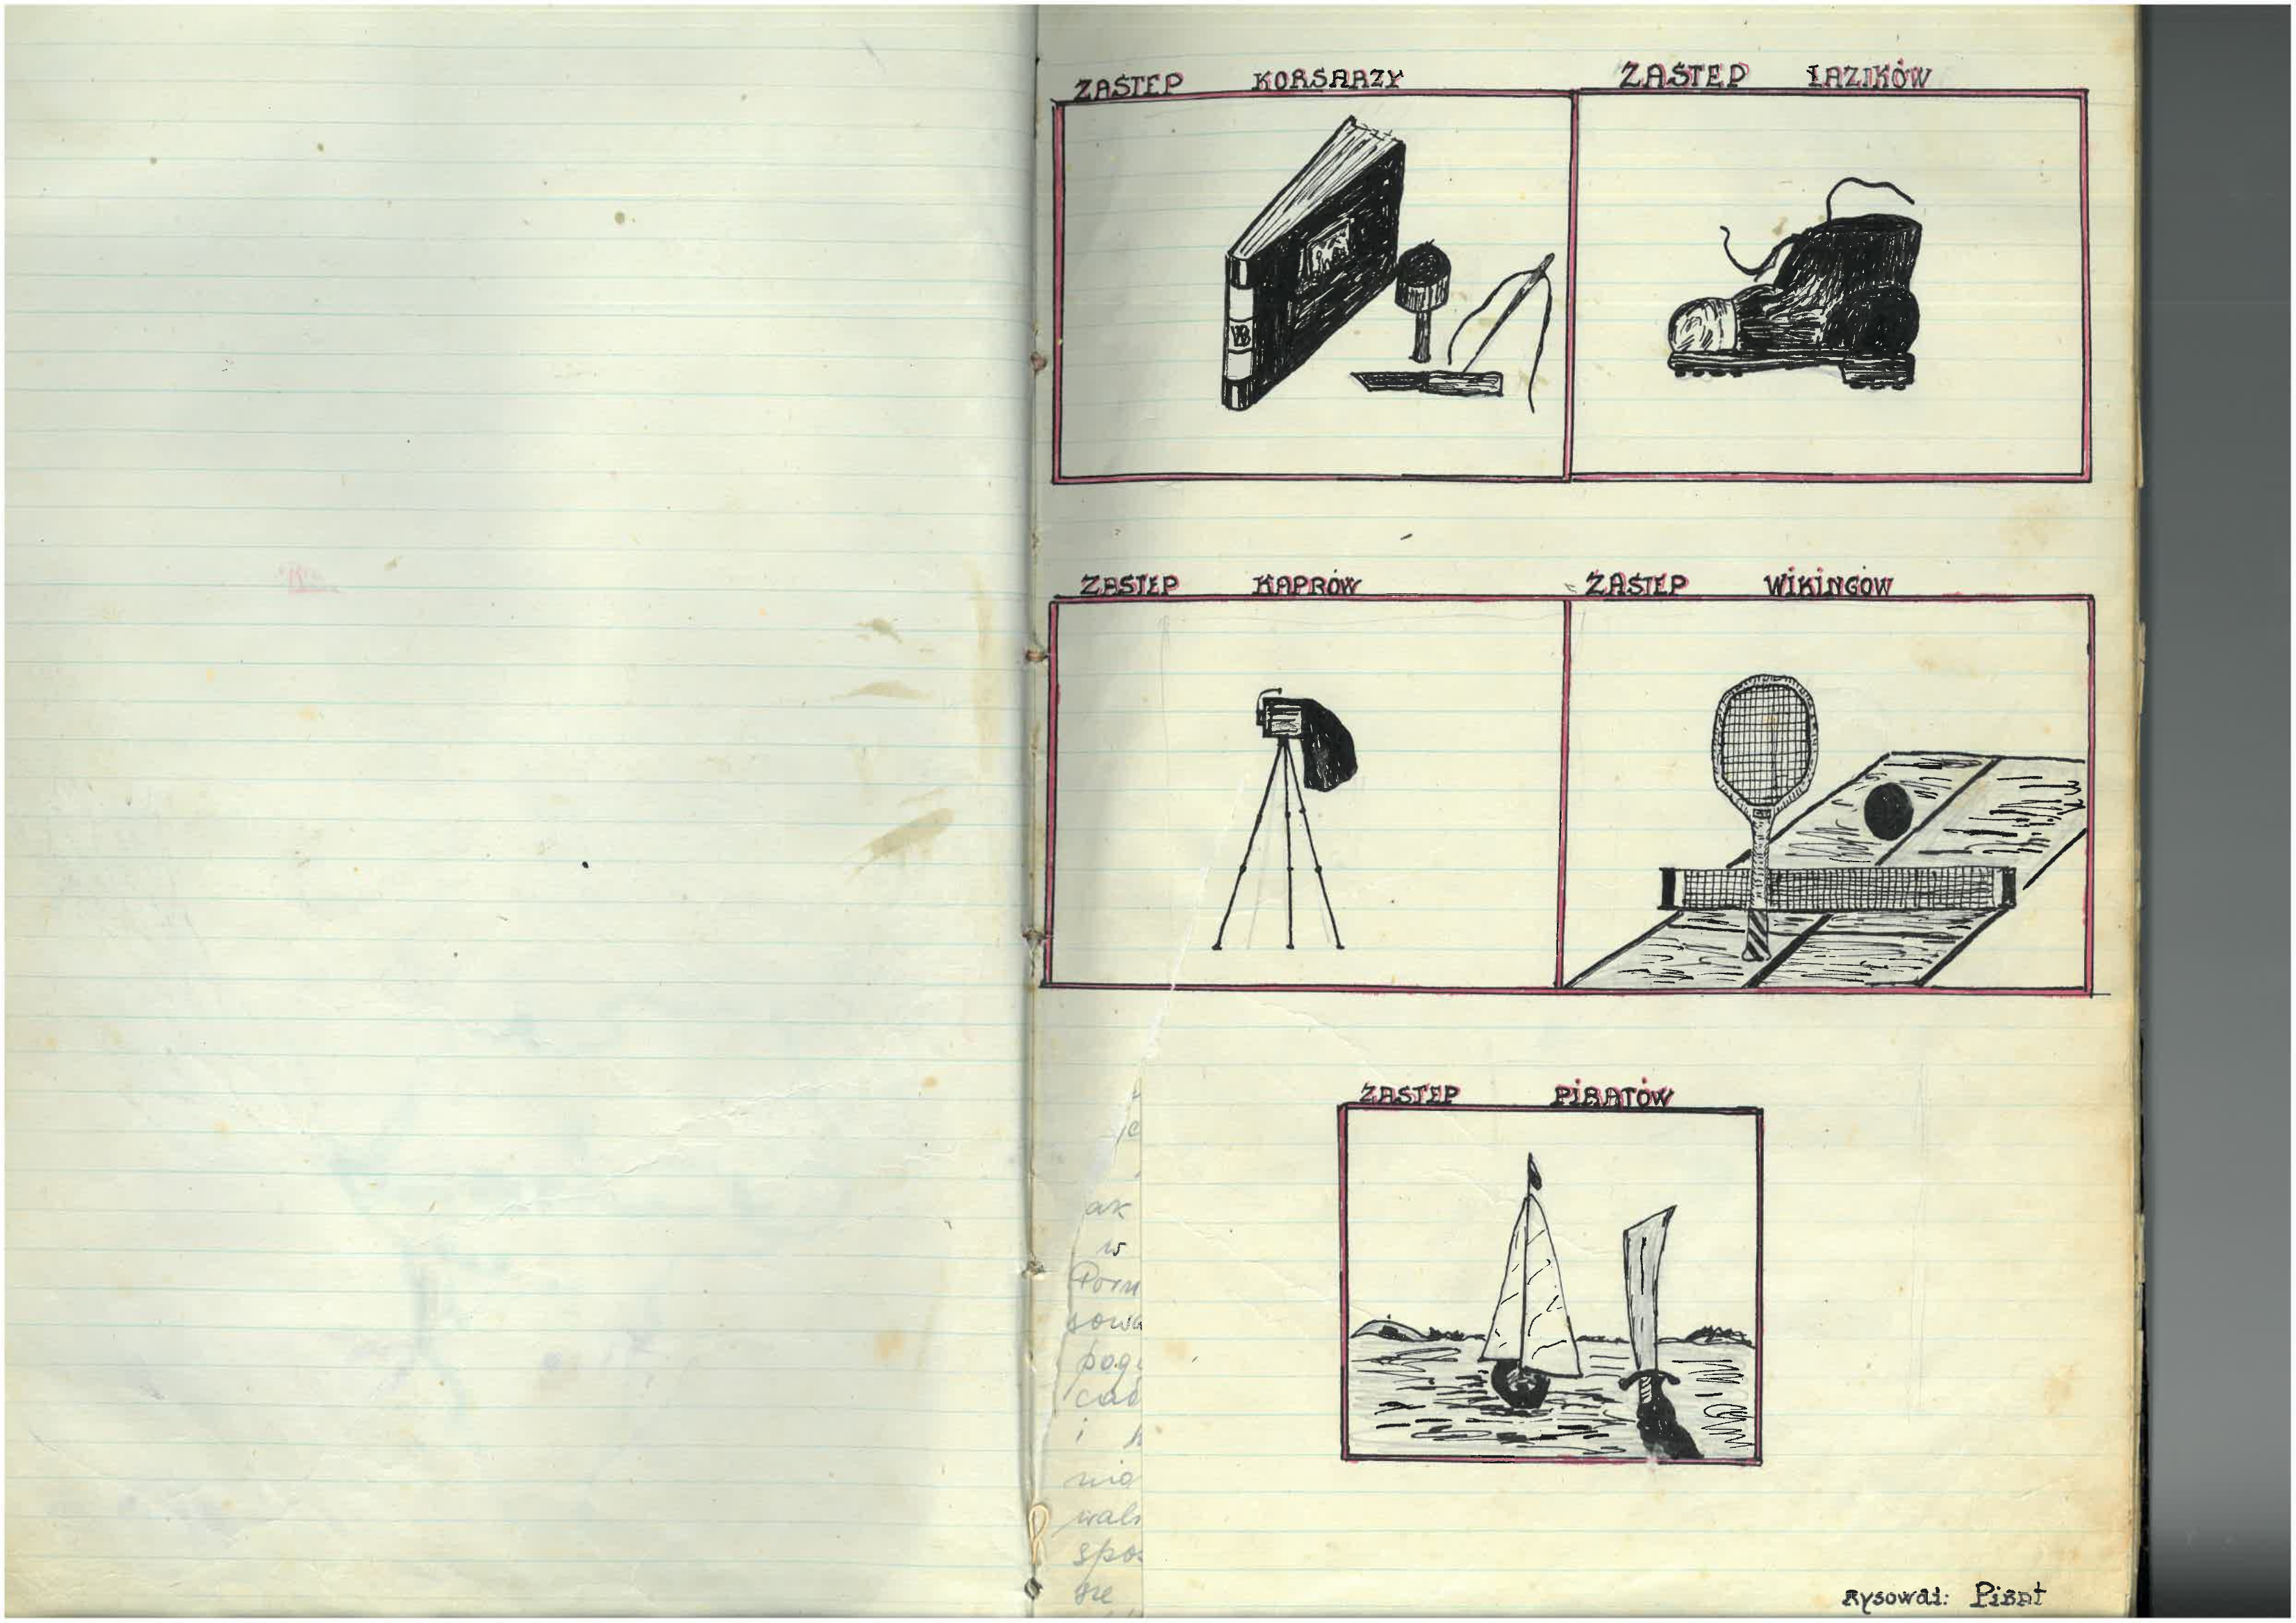 ZASTĘP KORSARZY
ZASTĘP ŁAZIKÓW
WB
ZASTĘP KAPRÓW
ZASTĘP WIKINGÓW
ZASTĘP PIRATÓW
ak
w
Pom
sowa
i
nia
spo
Rysował: Pirat